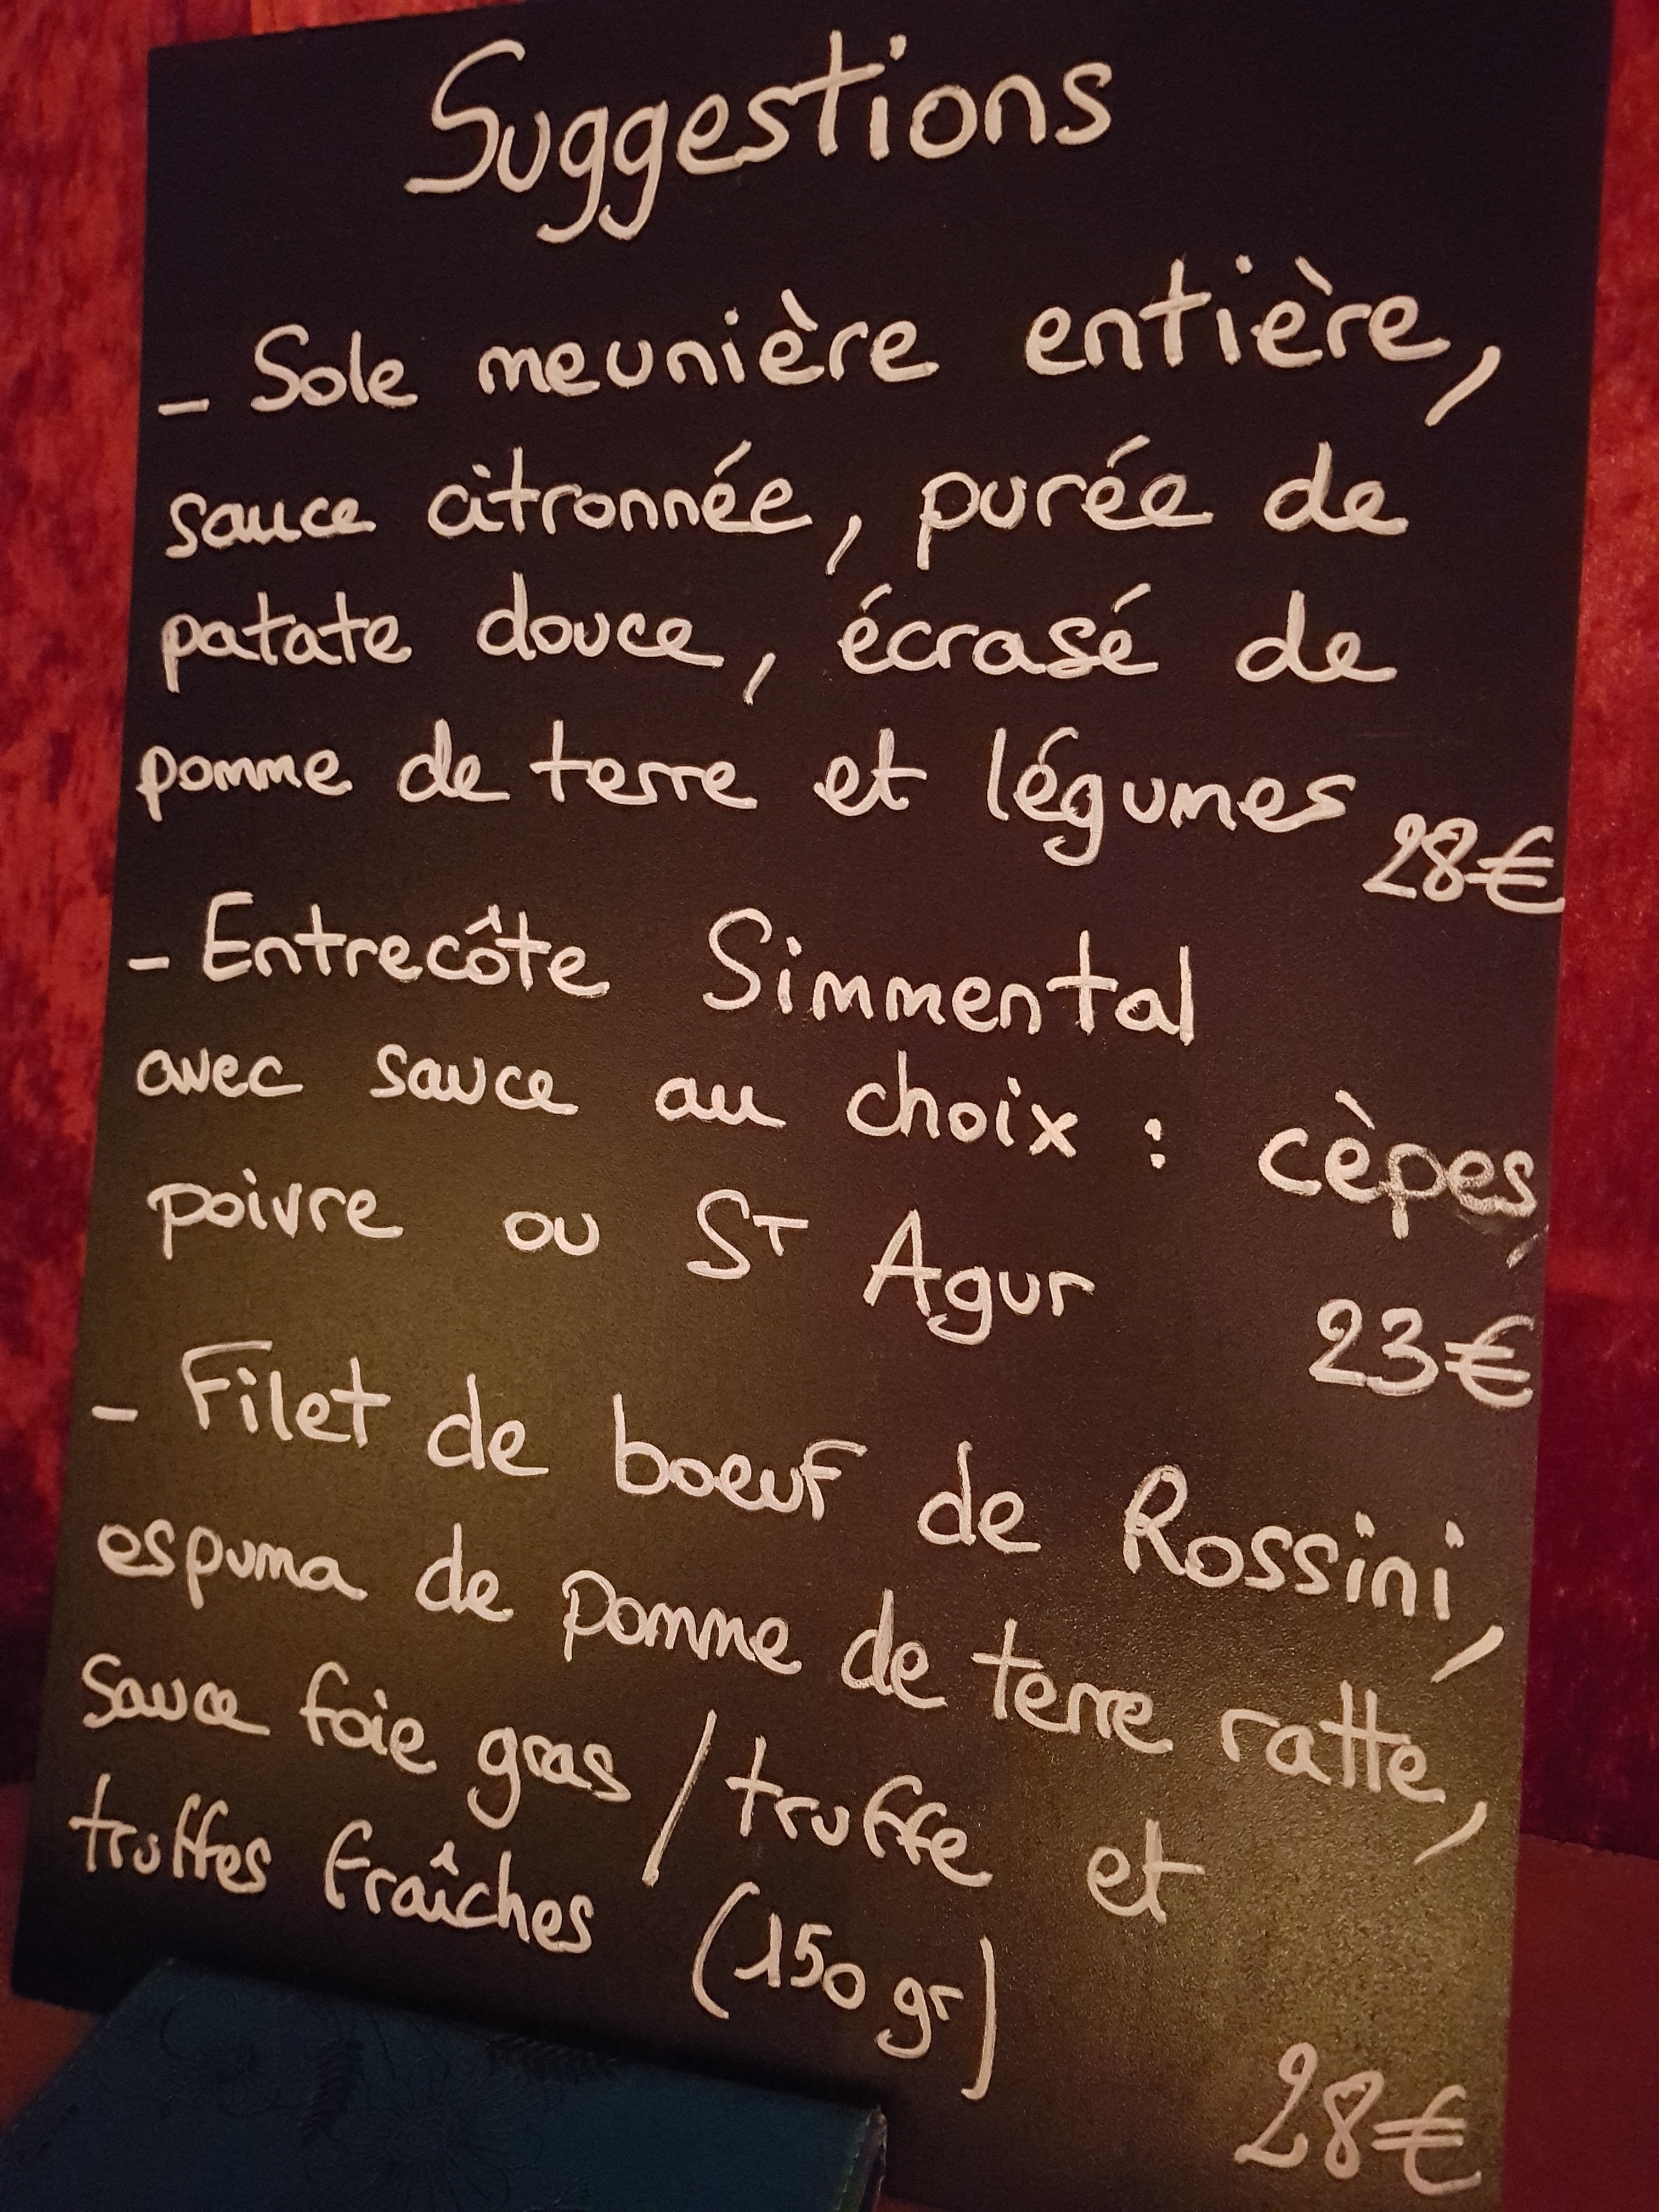 Suggestions
- Sole meunière entière,
sauce citronnée, purée de
patate douce, écrasé de
pomme de terre et légumes
28€
- Entrecôte Simmental
avec sauce au choix : cèpes,
poivre ou St Agur
23€
- Filet de boeuf de Rossini,
espuma de pomme de terre ratte,
sauce foie gras / truffe et
truffes fraîches (150 gr)
28€